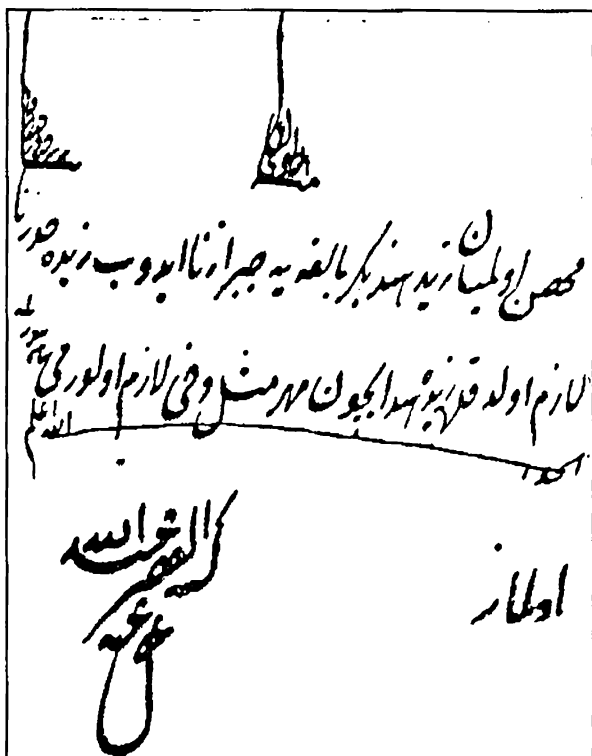 محصن اولميان زيد هند بكر بالغه يه جبرا زنا ايدوب زيده حد زنا
لازم اولدقده زيده هند ايچون مهر مثل دخى لازم اولورمى
الله اعلم
الجواب
اولماز
كتبه الفقير عبد الله
عفى عنه